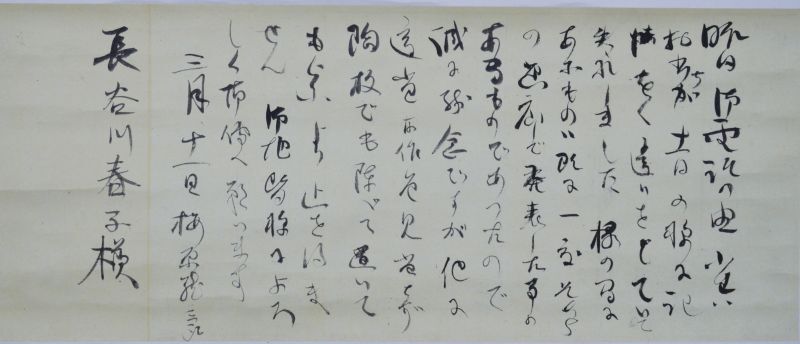 昨日御電話の由 小生ハ
土曰の様に記
憶 違ひをして居て
失礼しました
あのものハ既に一度そちら
の画廊で発表した事の
あるものであつたので
誠に残念ですが他に
適当 作 見当らず
陶板でも陳べて置いて
より止を得ま
せん 御地皆様によろ
しく御傳へ願います
三月十一日 梅原龍三郎
長谷川春子様